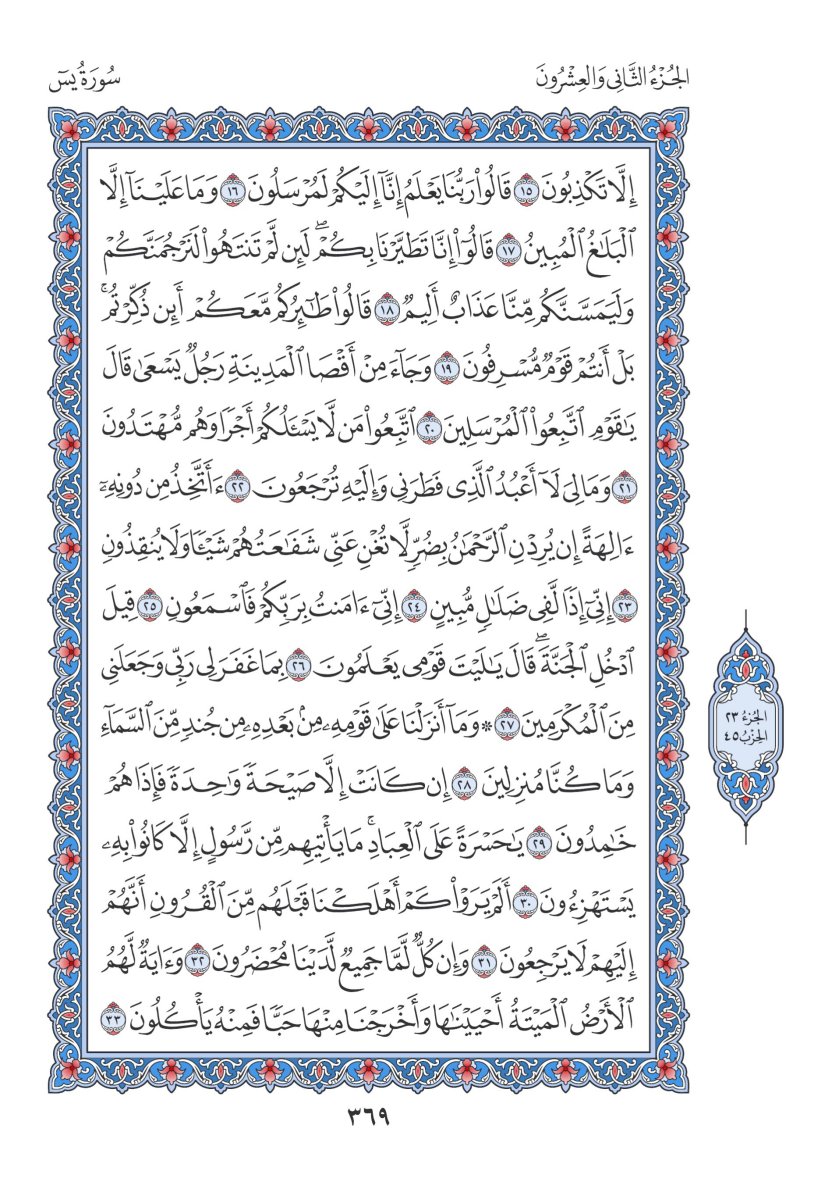 الجُزْءُ الثَّانِي وَالعِشْرُونَ
سُورَةُ يسٓ
إِلَّا تَكْذِبُونَ ١٥ قَالُوا۟ رَبُّنَا يَعْلَمُ إِنَّآ إِلَيْكُمْ لَمُرْسَلُونَ ١٦ وَمَا عَلَيْنَآ إِلَّا
ٱلْبَلَٰغُ ٱلْمُبِينُ ١٧ قَالُوٓا۟ إِنَّا تَطَيَّرْنَا بِكُمْ ۖ لَئِن لَّمْ تَنتَهُوا۟ لَنَرْجُمَنَّكُمْ
وَلَيَمَسَّنَّكُم مِّنَّا عَذَابٌ أَلِيمٌ ١٨ قَالُوا۟ طَٰٓئِرُكُم مَّعَكُمْ أَئِن ذُكِّرْتُم ۚ
بَلْ أَنتُمْ قَوْمٌ مُّسْرِفُونَ ١٩ وَجَآءَ مِنْ أَقْصَا ٱلْمَدِينَةِ رَجُلٌ يَسْعَىٰ قَالَ
يَٰقَوْمِ ٱتَّبِعُوا۟ ٱلْمُرْسَلِينَ ٢٠ ٱتَّبِعُوا۟ مَن لَّا يَسْـَٔلُكُمْ أَجْرًا وَهُم مُّهْتَدُونَ
٢١ وَمَا لِىَ لَآ أَعْبُدُ ٱلَّذِى فَطَرَنِى وَإِلَيْهِ تُرْجَعُونَ ٢٢ ءَأَتَّخِذُ مِن دُونِهِۦٓ
ءَالِهَةً إِن يُرِدْنِ ٱلرَّحْمَٰنُ بِضُرٍّ لَّا تُغْنِ عَنِّى شَفَٰعَتُهُمْ شَيْـًٔا وَلَا يُنقِذُونِ
٢٣ إِنِّىٓ إِذًا لَّفِى ضَلَٰلٍ مُّبِينٍ ٢٤ إِنِّىٓ ءَامَنتُ بِرَبِّكُمْ فَٱسْمَعُونِ ٢٥ قِيلَ
ٱدْخُلِ ٱلْجَنَّةَ ۖ قَالَ يَٰلَيْتَ قَوْمِى يَعْلَمُونَ ٢٦ بِمَا غَفَرَ لِى رَبِّى وَجَعَلَنِى
مِنَ ٱلْمُكْرَمِينَ ٢٧ * وَمَآ أَنزَلْنَا عَلَىٰ قَوْمِهِۦ مِنۢ بَعْدِهِۦ مِن جُندٍ مِّنَ ٱلسَّمَآءِ
وَمَا كُنَّا مُنزِلِينَ ٢٨ إِن كَانَتْ إِلَّا صَيْحَةً وَٰحِدَةً فَإِذَا هُمْ
خَٰمِدُونَ ٢٩ يَٰحَسْرَةً عَلَى ٱلْعِبَادِ ۚ مَا يَأْتِيهِم مِّن رَّسُولٍ إِلَّا كَانُوا۟ بِهِۦ
يَسْتَهْزِءُونَ ٣٠ أَلَمْ يَرَوْا۟ كَمْ أَهْلَكْنَا قَبْلَهُم مِّنَ ٱلْقُرُونِ أَنَّهُمْ
إِلَيْهِمْ لَا يَرْجِعُونَ ٣١ وَإِن كُلٌّ لَّمَّا جَمِيعٌ لَّدَيْنَا مُحْضَرُونَ ٣٢ وَءَايَةٌ لَّهُمُ
ٱلْأَرْضُ ٱلْمَيْتَةُ أَحْيَيْنَٰهَا وَأَخْرَجْنَا مِنْهَا حَبًّا فَمِنْهُ يَأْكُلُونَ ٣٣
الجُزْءُ ٢٣
الحِزْبُ ٤٥
٣٦٩